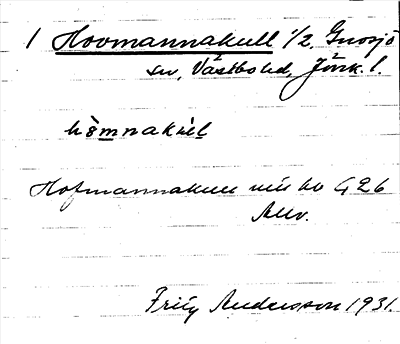 1 Hovmannakull 1/2, Gnosjö
sn, Västbo hd, Jönk. l.
hòmnakùl
Hofmannakull
Fritz Andersson 1931.